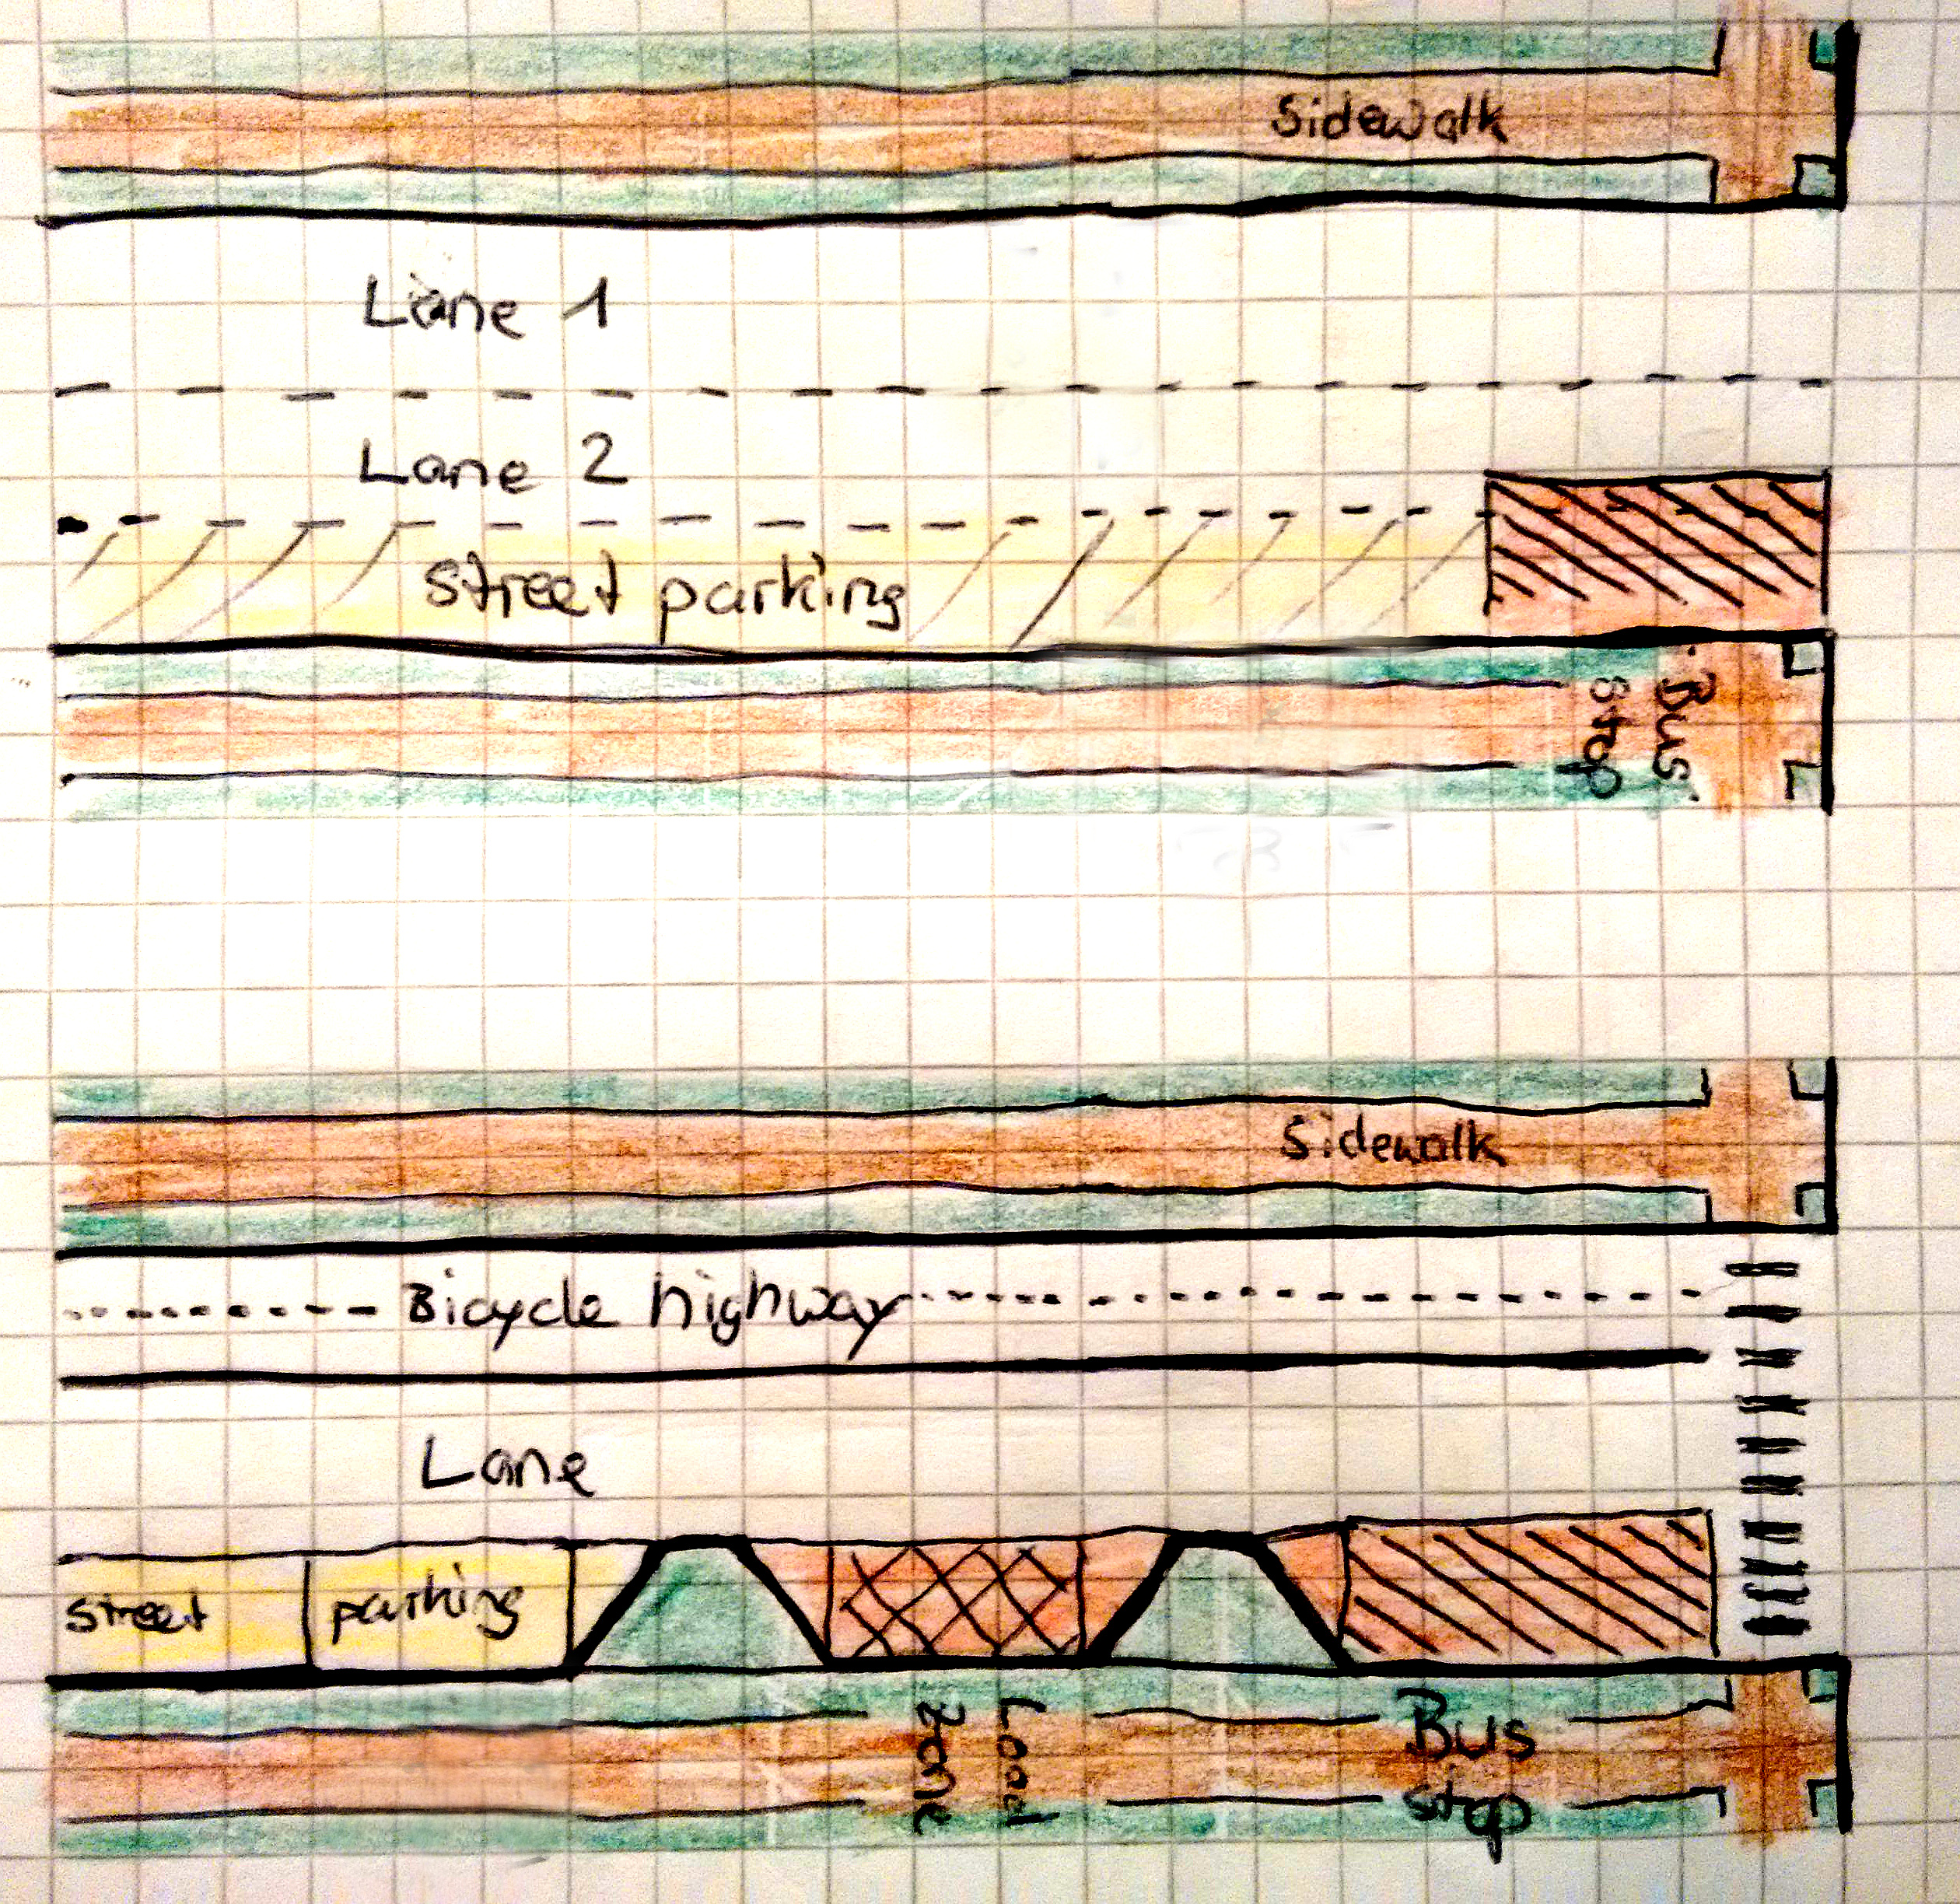 Sidewalk
Lane 1
Lane 2
Street parking
Bus
Stop
Sidewalk
Bicycle highway
Lane
street parking
Load
zone
Bus
stop